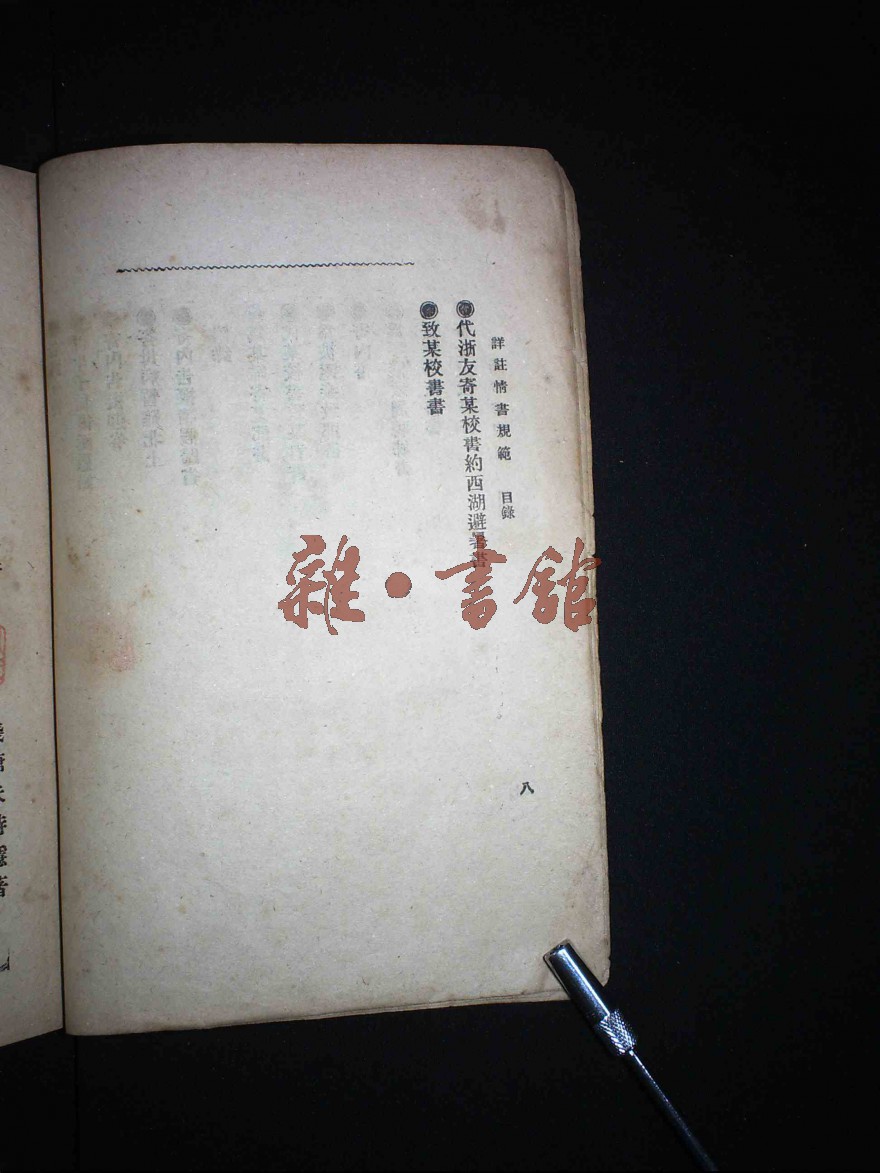 詳註情書規範 目錄
代浙友寄某校書約西湖避暑書
致某校書書
八
雜·書館